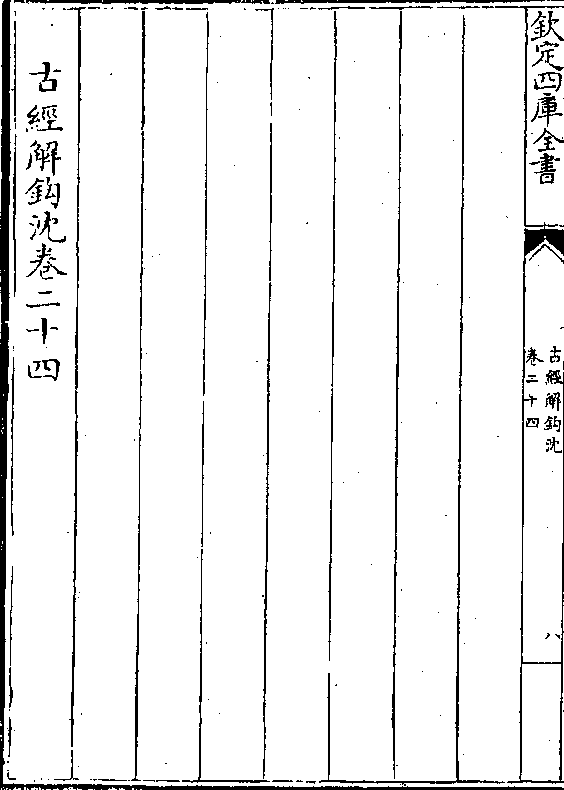 欽定四庫全書
古經解鈎沈
卷二十四
八
古經解鈎沈卷二十四